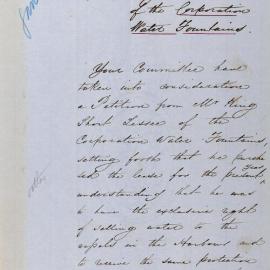 of the Corporation
Water Fountains.
Your Committee have
taken into consideration
a Petition from Mr King
Short Lessee of the
Corporation Water Fountains,
setting forth that he purcha
sed the lease for the present year
understanding that he was
to have the exclusive right
of selling water to the
vessels in the Harbour and
to receive the same protection